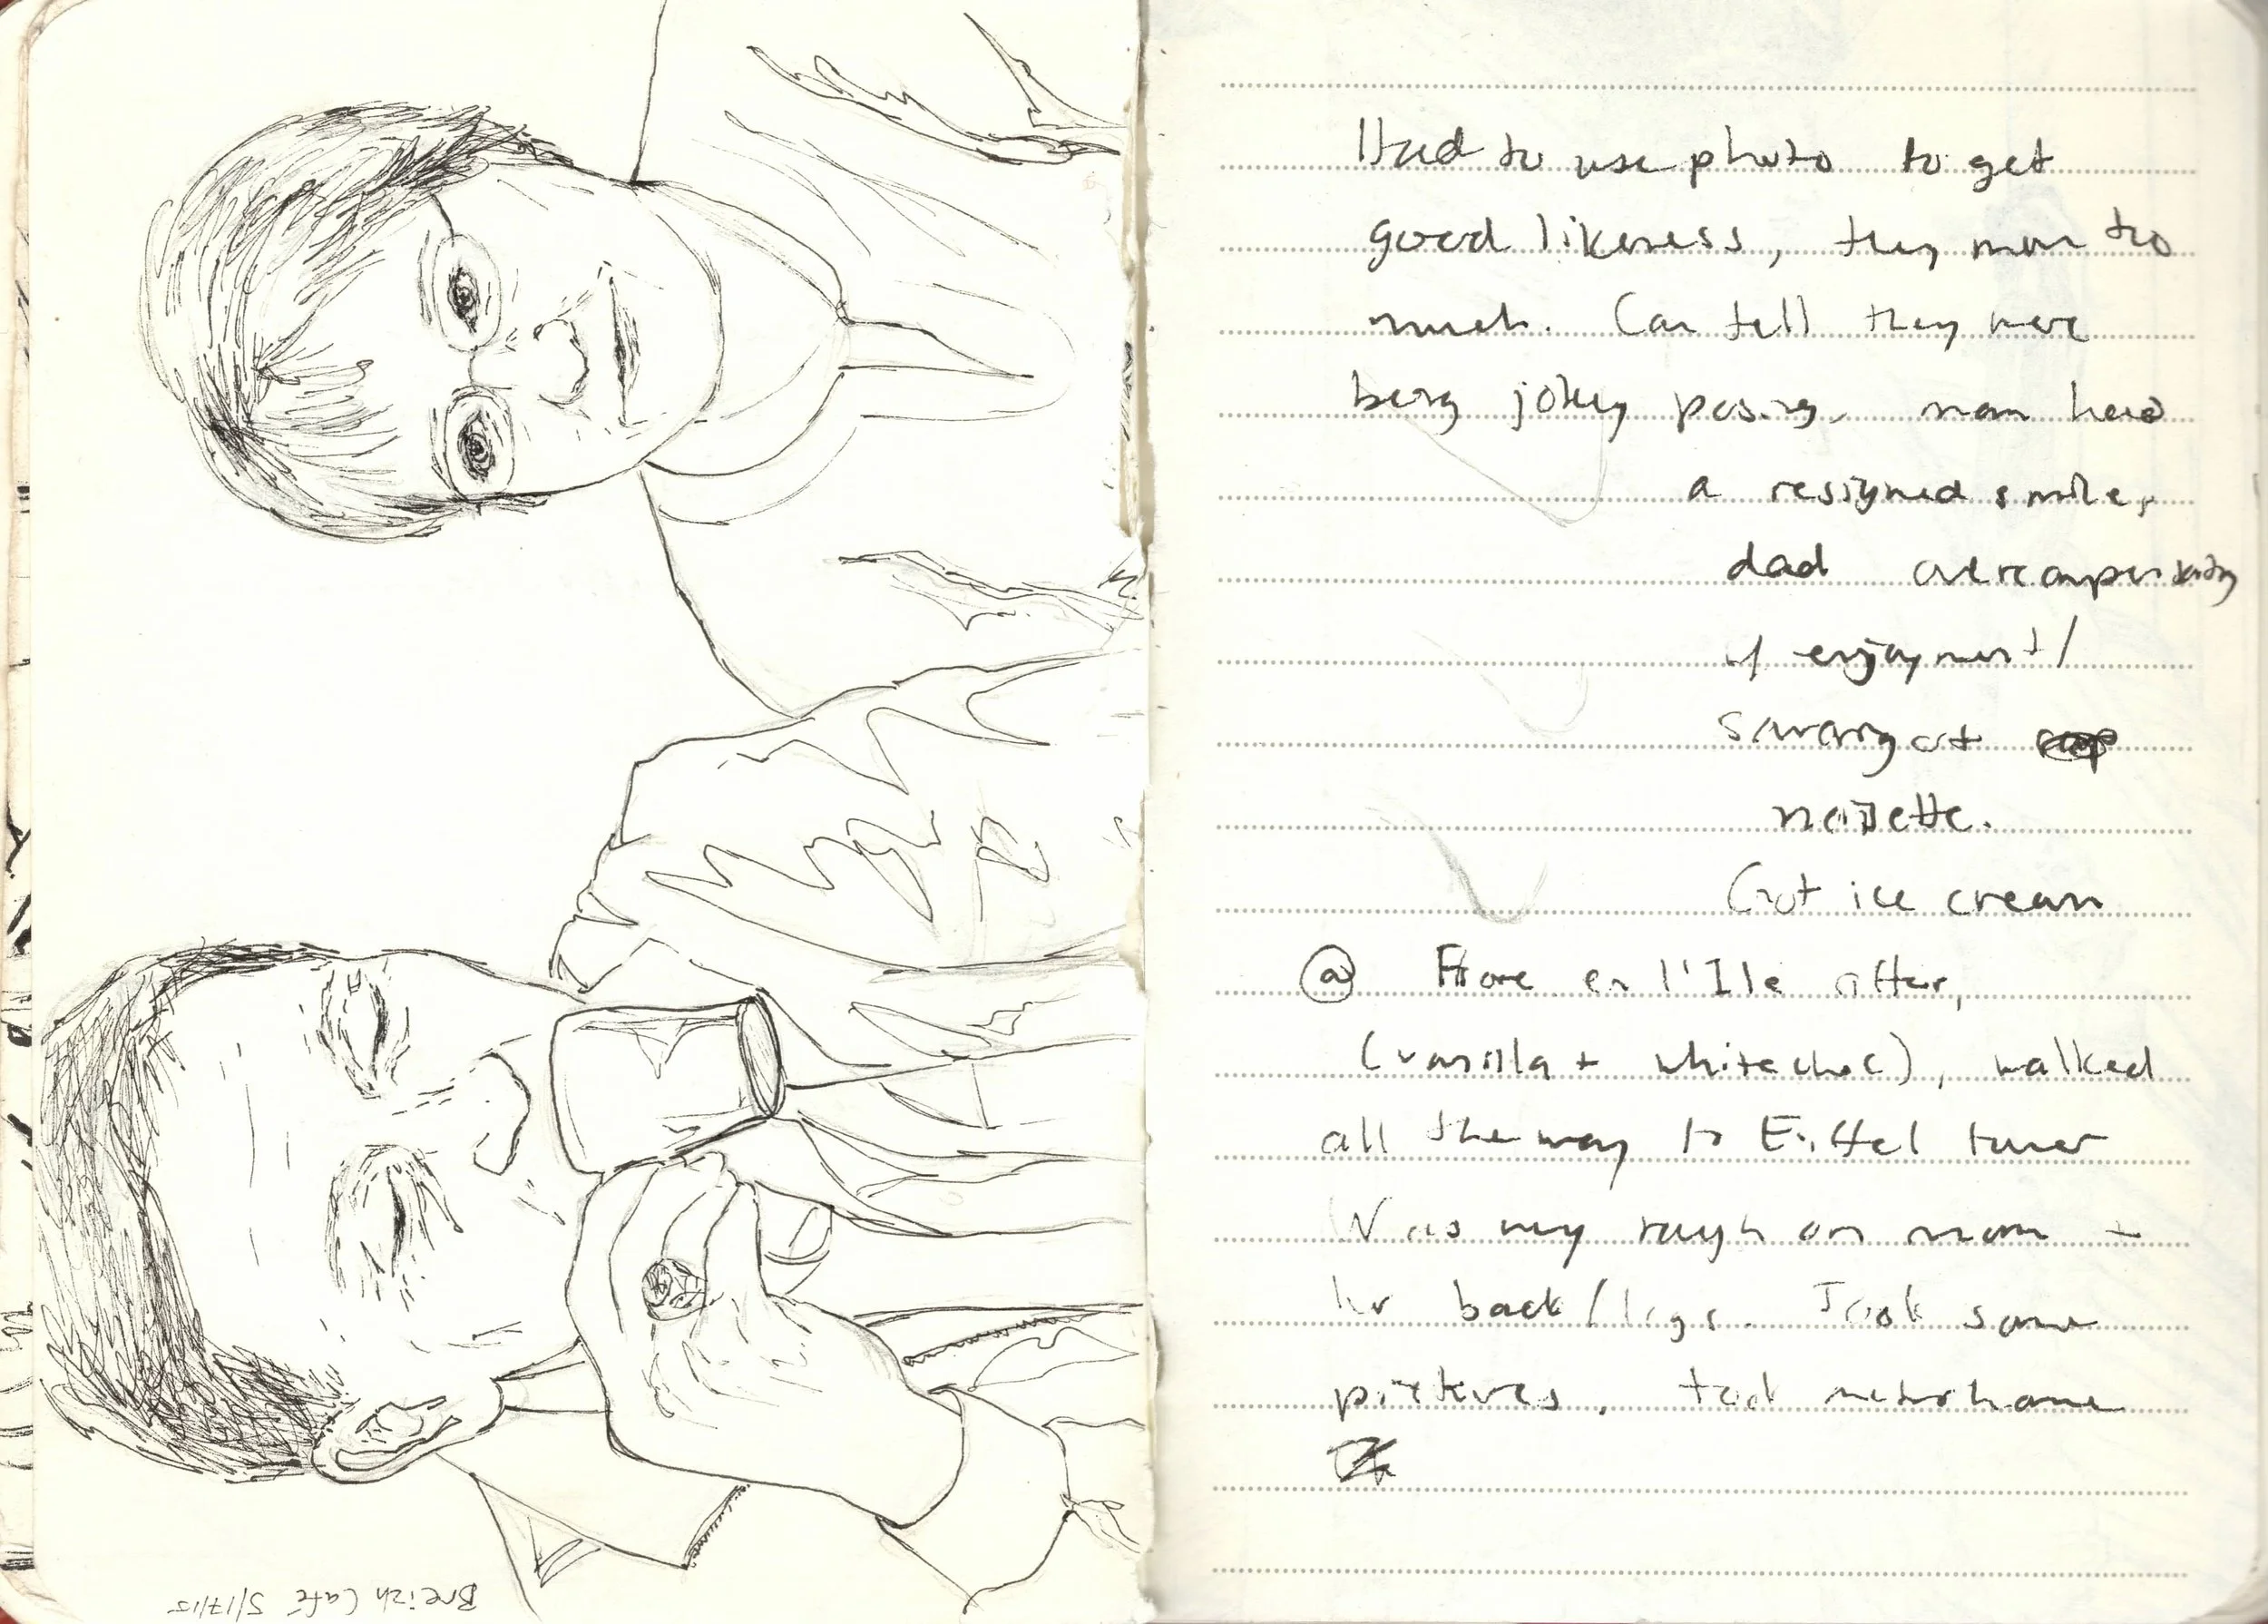 Had to use photo to get
good likeness, they move too
much. Can tell they were
being jokey posing. mom here
a resigned smile,
dad overcompensating
w/ enjoyment/
savoring at
noisette.
Got ice cream
@ Flore en l'Ile after,
(vanilla + white choc), walked
all the way to Eiffel tower
Was my rough on mom -
her back/legs. Took some
pictures, took metro home
Breizh Café 5/17/15